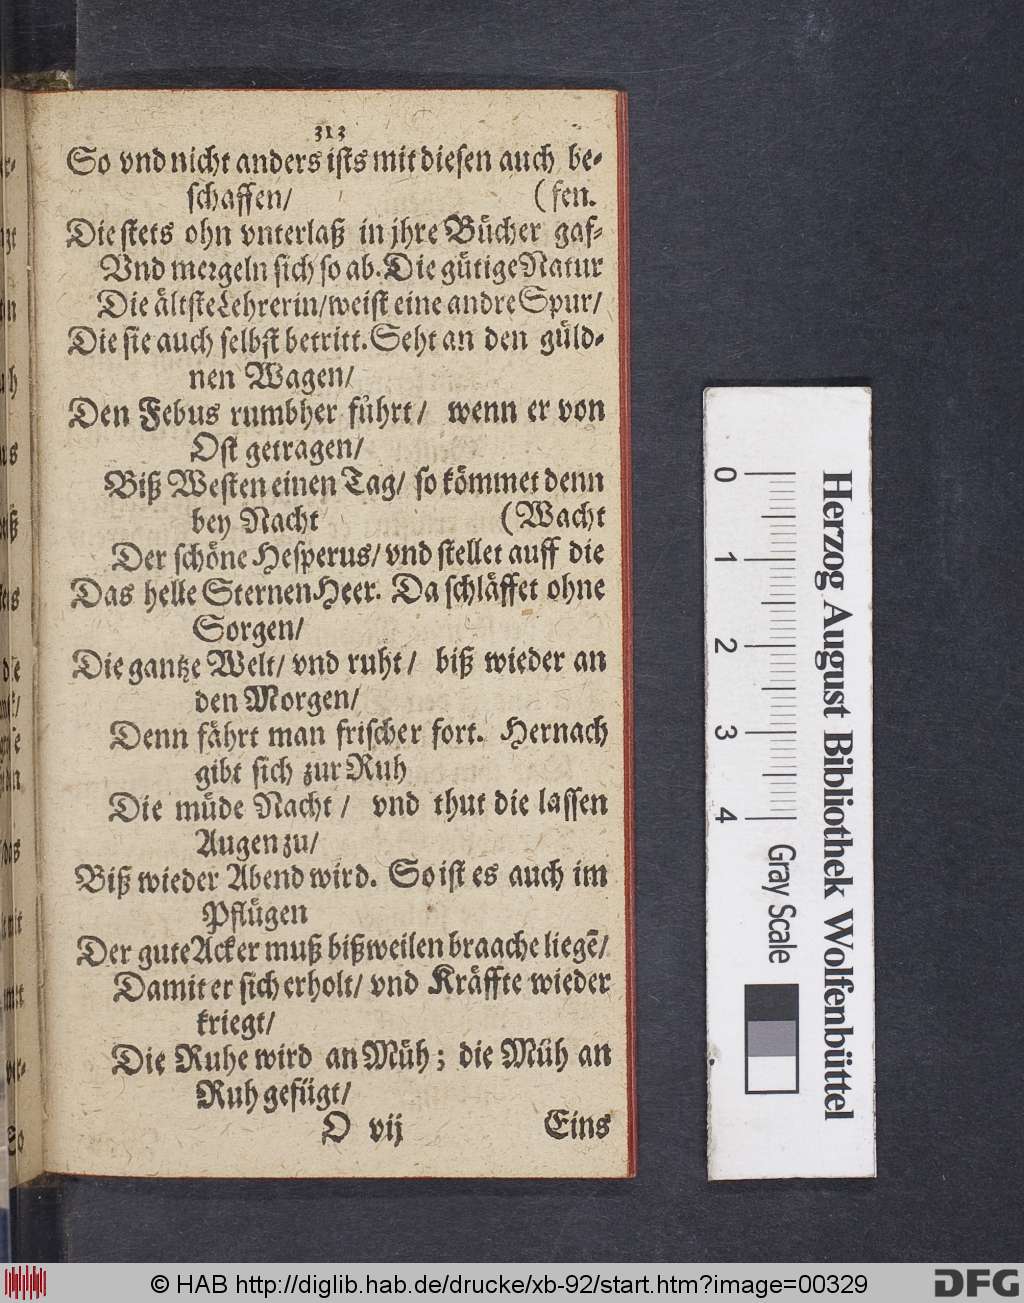 313
So vnd nicht anders ists mit diesen auch be-
schaffen/ (fen.
Die stets ohn vnterlaß in jhre Bücher gaf-
Vnd mergeln sich so ab. Die gütige Natur
Die ältste Lehrerin/ weist eine andre Spur/
Die sie auch selbst betritt. Seht an den güld-
nen Wagen/
Den Febus rumbher führt/ wenn er von
Ost getragen/
Biß Westen einen Tag/ so kömmet denn
bey Nacht (Wacht
Der schöne Hesperus/ vnd stellet auff die
Das helle Sternen Heer. Da schläffet ohne
Sorgen/
Die gantze Welt/ vnd ruht/ biß wieder an
den Morgen/
Denn fährt man frischer fort. Hernach
gibt sich zur Ruh
Die müde Nacht/ vnd thut die lassen
Augen zu/
Biß wieder Abend wird. So ist es auch im
Pflügen
Der gute Acker muß bißweilen braache liegē/
Damit er sich erholt/ vnd Kräffte wieder
kriegt/
Die Ruhe wird an Müh; die Müh an
Ruh gefügt/
O vij Eins
0 1 2 3 4
Gray Scale
Herzog August Bibliothek Wolfenbüttel
© HAB http://diglib.hab.de/drucke/xb-92/start.htm?image=00329
DFG